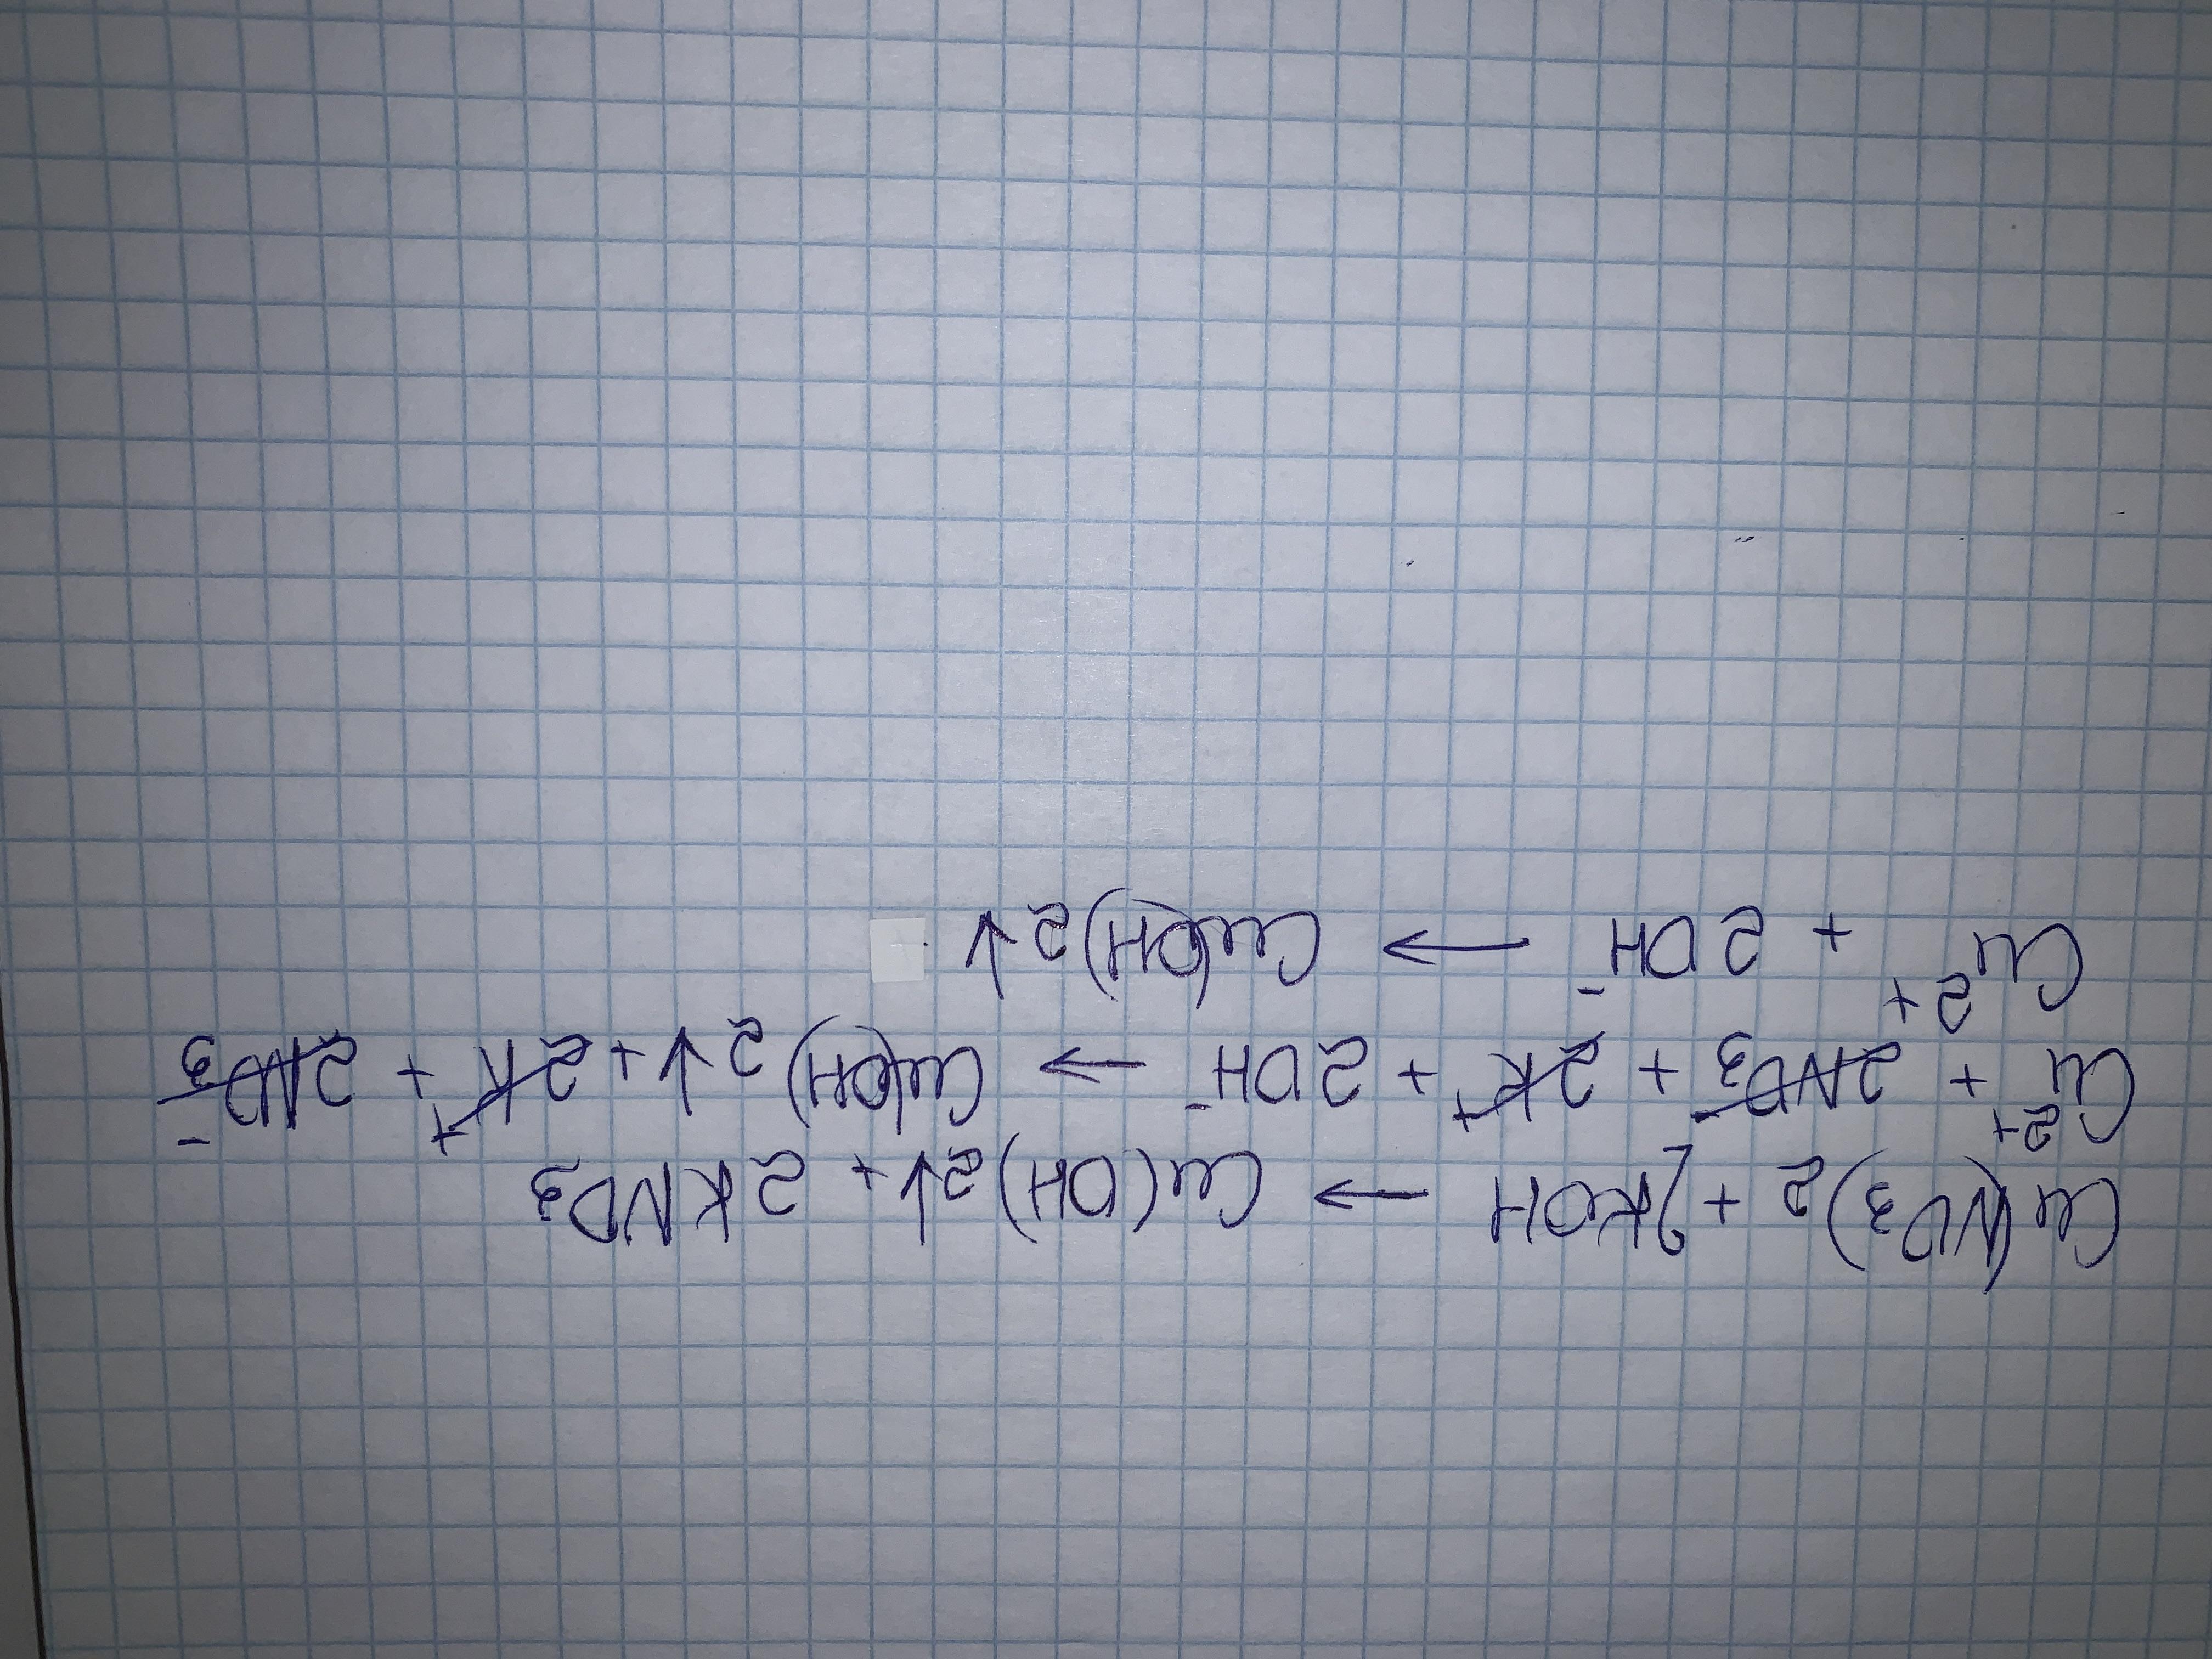 Cu(NO3)2 + 2KOH → Cu(OH)2↓ + 2KNO3
Cu2+ + 2NO3- + 2K+ + 2OH- → Cu(OH)2↓ + 2K+ + 2NO3-
Cu2+ + 2OH- → Cu(OH)2↓